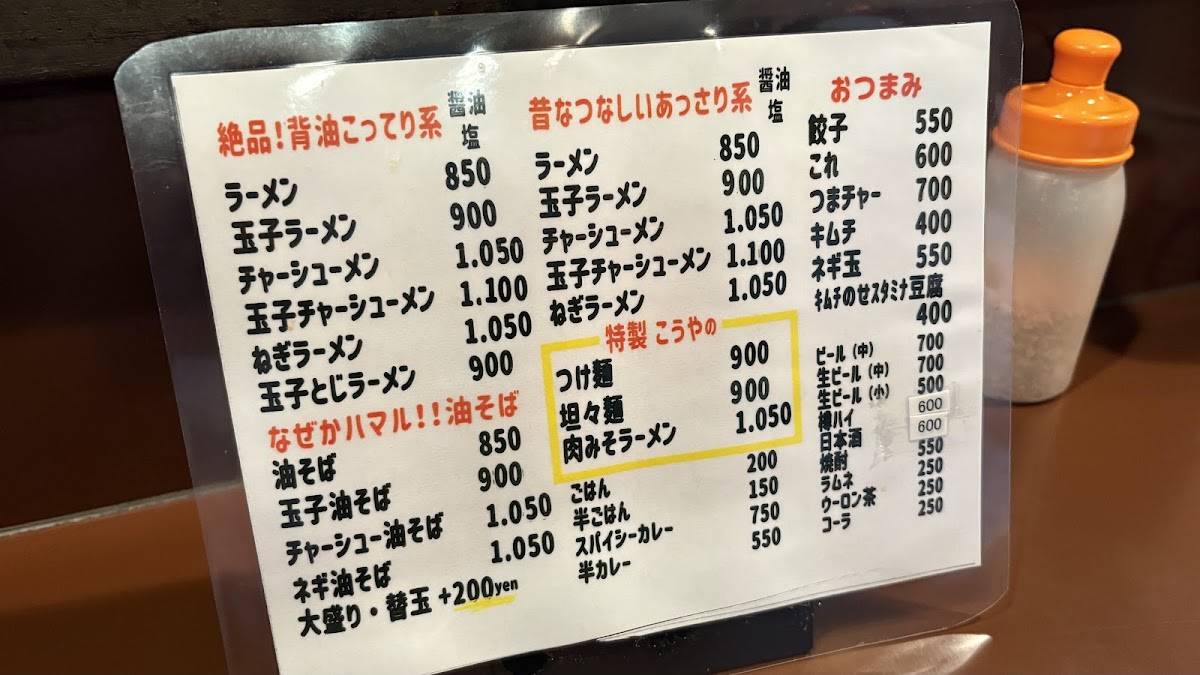 絶品!背油こってり系 醤油 塩
ラーメン 850
玉子ラーメン 900
チャーシューメン 1.050
玉子チャーシューメン 1.100
ねぎラーメン 1.050
玉子とじラーメン 900
なぜかハマル!!油そば
油そば 850
玉子油そば 900
チャーシュー油そば 1.050
ネギ油そば 1.050
大盛り・替玉 +200yen
昔なつなしいあっさり系 醤油 塩
ラーメン 850
玉子ラーメン 900
チャーシューメン 1.050
玉子チャーシューメン 1.100
ねぎラーメン 1.050
特製 こうやの
つけ麺 900
坦々麺 900
肉みそラーメン 1.050
ごはん 200
半ごはん 150
スパイシーカレー 750
半カレー 550
おつまみ
餃子 550
これ 600
つまチャー 700
キムチ 400
ネギ玉 550
キムチのせスタミナ豆腐
400
ビール(中) 700
生ビール(中) 700
生ビール(小) 500
樽ハイ 600
日本酒 600
焼酎 550
ラムネ 250
ウーロン茶 250
コーラ 250